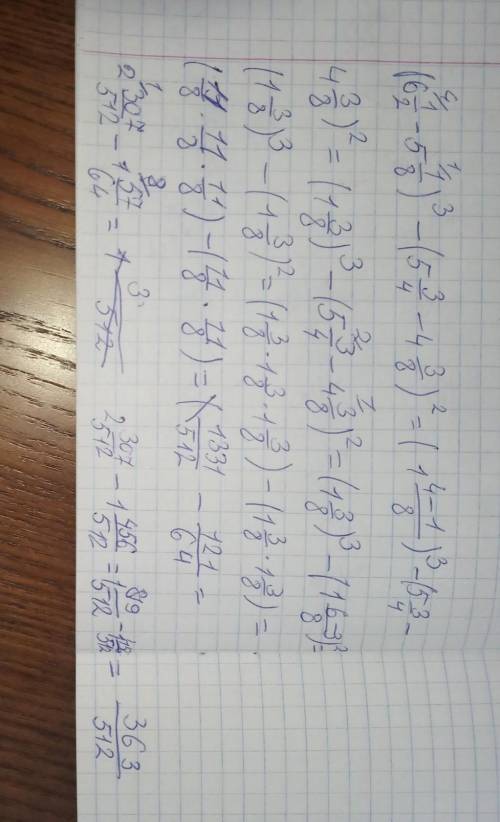 (6 1/2 - 5 1/8)³ - (5 3/4 - 4 3/8)² = (1 4-1/8)³ - (5 3/4 -
4 3/8)² = (1 3/8)³ - (5 3/4 - 4 3/8)² = (1 3/8)³ - (1 6-3/8)² =
(1 3/8)³ - (1 3/8)² = (1 3/8 · 1 3/8 · 1 3/8) - (1 3/8 · 1 3/8) =
(11/8 · 11/8 · 11/8) - (11/8 · 11/8) = 1331/512 - 121/64 =
2 307/512 - 1 57/64 = 2 307/512 - 1 456/512 = 1 819/512 - 1 456/512 = 363/512